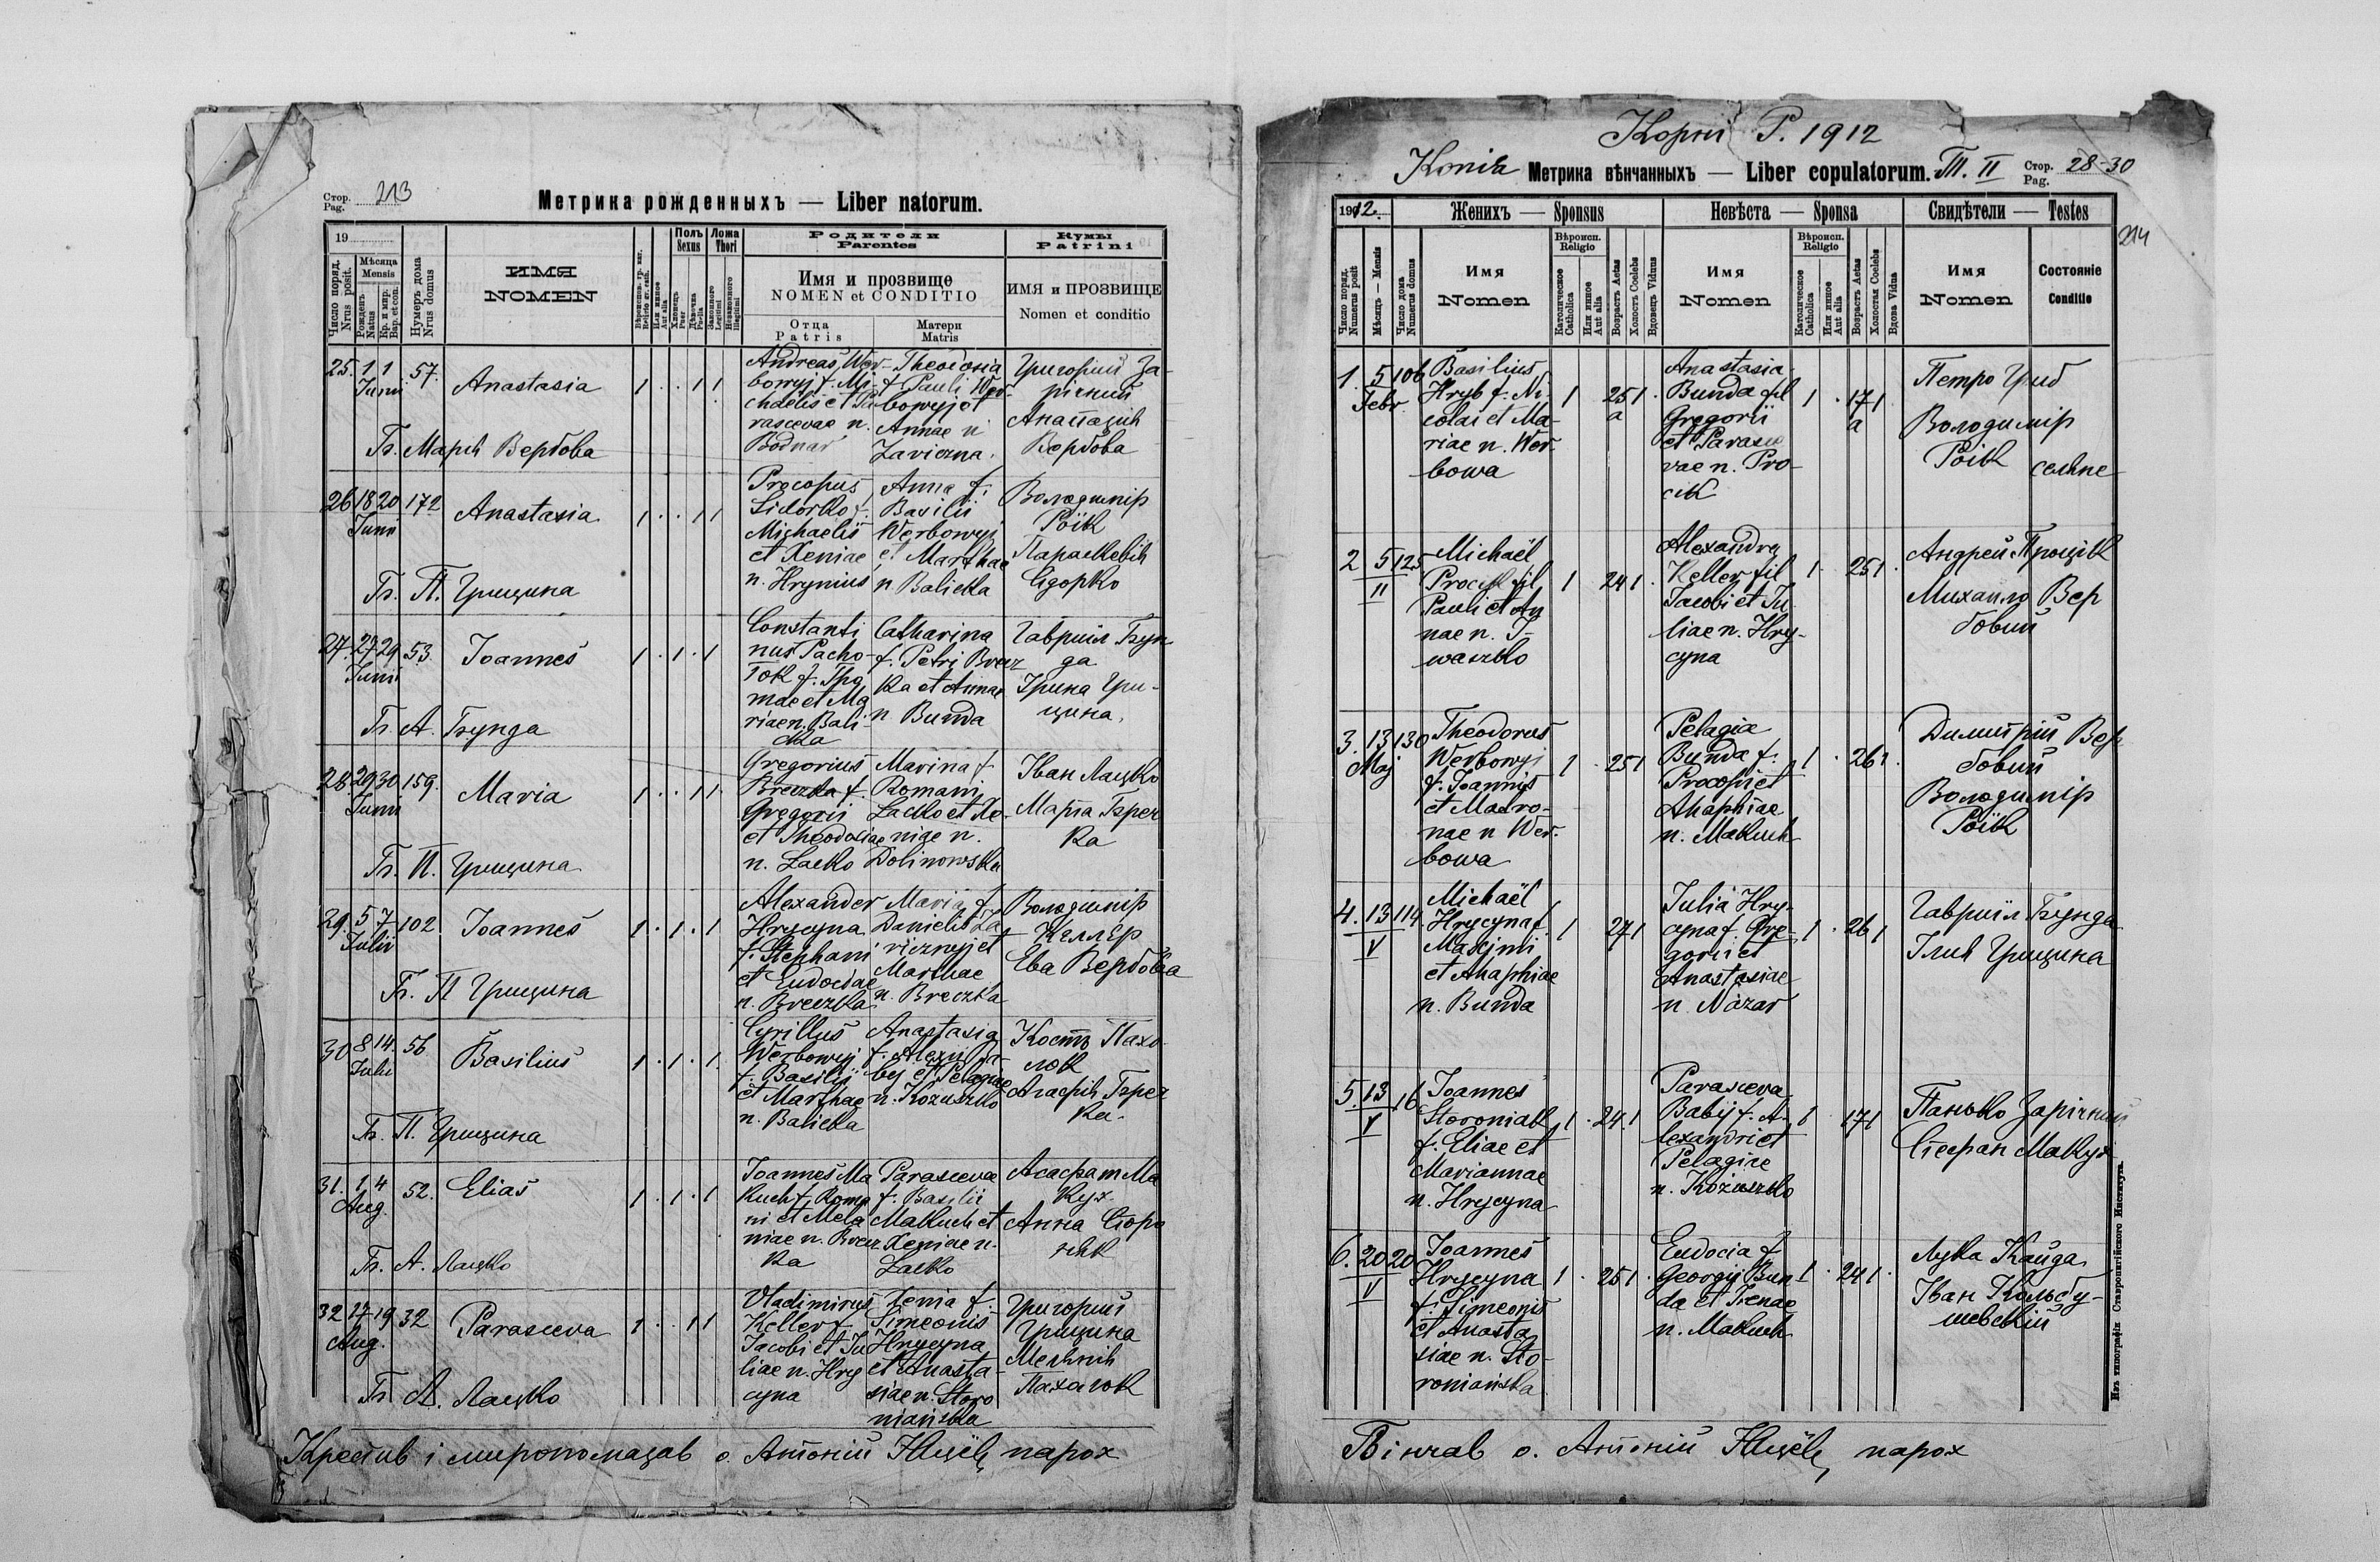 Стор. Pag. 213
Метрика рожденныхъ — Liber natorum.
19
Число поряд. Nrus posit.
Мѣсяца Mensis
Рожденъ Natus
Кр. и мир. Bap. et con.
Нумеръ дома Nrus domus
ИМЯ
NOMEN
Или инное Aut alia
Полъ Sexus
Хлопецъ Puer
Дѣвочка Puella
Ложа Thori
Законного Legitimi
Незаконного Illegitimi
Родители
Parentes
Имя и прозвище
NOMEN et CONDITIO
Отца
Patris
Матери
Matris
Кумы
Patrini
ИМЯ и ПРОЗВИЩЕ
Nomen et conditio
25. 1 1 Junii 57. Anastasia 1 . . 1 1
Andreas Wer-
bowyj f. Mi-
chaelis et Pa
rascevae n.
Bodnar
Theodosia
f. Pauli Wer-
bowyj et
Annae n
Zariczna.
Григорий За-
річний
Анастазія
Вербова
Бг. Марія Вербова
26 18 20 Junii 172 Anastasia 1 . . 1 1
Procopius
Sidorko f.
Michaelis
et Xeniae
n. Hrynius
Anna f.
Basilii
Werbowyj
et Marthae
n Balicka
Володимір
Роїк
Параскевія
Сідорко
Бг. П. Грицина
27. 27 29 Junii 53 Joannes 1 . 1 . 1
Constanti
nus Pacho-
lok f. Tho
mae et Ma
riae n. Bali-
cka
Catharina
f. Petri Brecz
ka et Annae
n Bunda
Гавриїл Бун
да
Ірина Гри-
цина.
Бг. А. Бунда
28 29 30 Junii 159. Maria 1 . . 1 1
Gregorius
Breczka f.
Gregorii
et Theodosiae
n. Lacko
Marina f.
Romani
Lacko et Xe-
niae n.
Dolinowska
Іван Лацко
Марія Бреч
ка
Бг. П. Грицина
29. 5 7 Julii 102. Joannes 1 . 1 . 1
Alexander
Hrycyna
f. Stephani
et Eudociae
n. Breczka
Maria f.
Danielis Za
ricznyj et
Marthae
n. Breczka
Володимір
Келлєр
Ева Вербова
Бг. П Грицина
30 8 14. Julii 56 Basilius 1 . 1 . 1.
Cyrillus
Werbowyj
f. Basilii
et Marthae
n. Balicka
Anastasia
f. Alexii Ba-
bij et Pelagiae
n. Kozuszko
Костъ Пахо-
лок
Агафія Бреч
ка.
Бг. П. Грицина
31. 1 4 Aug. 52. Elias 1 . 1 . 1
Joannes Ma
kuch f. Roma
ni et Mela
niae n. Brecz
ka
Parasceva
f. Basilii
Makuch et
Xeniae n.
Lacko
Асафат Ма
кух.
Анна Сторо
няк
Бг. А. Лацко
32 17 19 Aug. 32 Parasceva 1 . . 1 1
Vladimirus
Keller f.
Jacobi et Ju
liae n. Hry
cyna
Xenia f.
Simeonis
Hrycyna
et Anasta-
siae n. Storo
niańska
Григорий
Грицина
Мелянія
Пахолок
Бг. А. Лацко
Крестив і миропомазав о. Антоній парох
Корнї Р. 1912
Kornie Метрика вѣнчанныхъ — Liber copulatorum. Т. II Стор. Pag. 28-30
214
1912.
Женихъ — Sponsus
Невѣста — Sponsa
Свидѣтели — Testes
Число поряд. Numerus posit
Мѣсяцъ — Mensis
Число дома Numerus domus
Имя
Nomen
Вѣроисп. Religio
Католическое Catholica
Или инное Aut alia
Возрастъ Aetas
Холостъ Coelebs
Вдовецъ Viduus
Имя
Nomen
Вѣроисп. Religio
Католическое Catholica
Или инное Aut alia
Возрастъ Aetas
Холостая Coelebs
Вдова Vidua
Имя
Nomen
Состояніе
Conditio
1. 5 Febr. 106
Basilius
Hryb f. Ni-
colai et Ma-
riae n. Wer-
bowa
1 25 1 . a
Anastasia
Bunda fil
Gregorii
et Parasce
vae n. Pro-
cik
1 . 17 1 a
Петро Гриб
Володимір
Роїк
2 5 II 125
Michaël
Procyk fil
Pauli et An
nae n. I-
waszko
1 24 1 .
Alexandra
Keller fil
Jacobi et Ju
liae n. Hry-
cyna
1 . 25 1 .
Андрей Процік
Михаило Вер
бовий
3. 13 Maj 130
Theodorus
Werbowyj
f. Joannis
et Matro-
nae n Wer-
bowa
1 . 25 1
Pelagia
Bunda f.
Procopii et
Ahaphiae
n. Makuch
1 . 26 1 .
Димитрій Вер
бовий
Володимір
Роїк
4. 13 V 114
Michaël
Hrycyna f.
Maximi
et Ahaphiae
n. Bunda
1 27 1
Julia Hry-
cyna f. Gre-
gorii et
Anastasiae
n Nazar
1 . 26 1
Гавриїл Бунда
Ілия Грицина
5. 13 V 16
Joannes
Storoniak
f. Eliae et
Mariannae
n. Hrycyna
1 . 24 1
Parasceva
Babij f. A-
lexandri et
Pelagiae
n. Kożuszko
1 17 1
Панько Зарічний
Стефан Макух
6. 20 V 20
Joannes
Hrycyna
f. Simeonis
et Anasta
siae n. Sto-
roniańska
1 . 25 1 .
Eudocia f.
Georgii Bun
da et Irenae
n. Makuch
1 . 24 1 .
Лука Кайда
Іван Кольбу-
шевский
Вінчав о. Антоній парох
Изъ типографіи Ставропигійского Института.